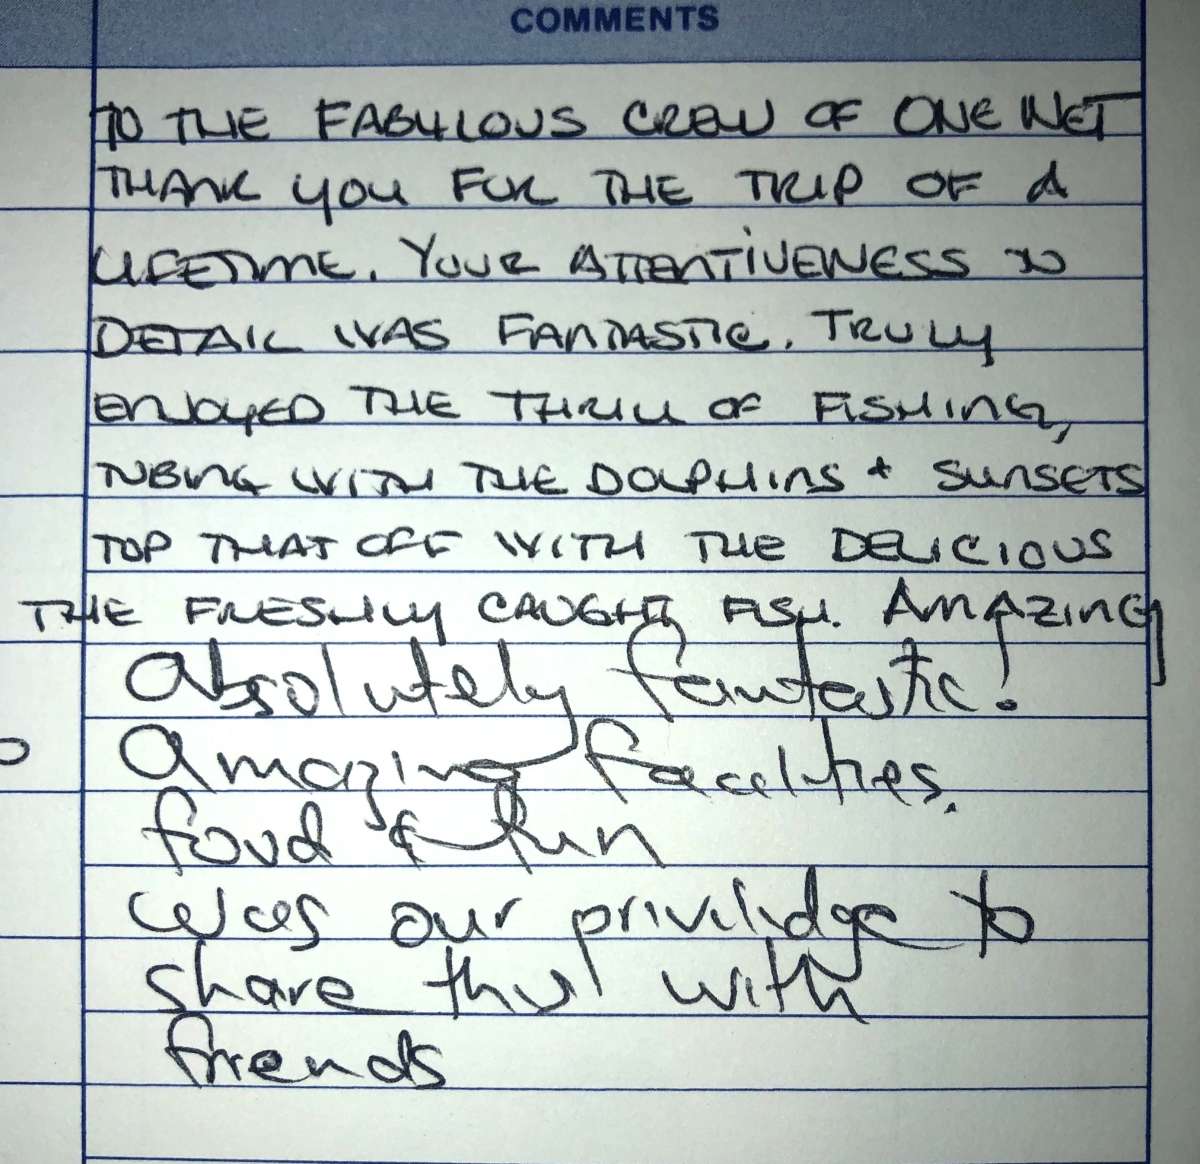 COMMENTS
TO THE FABULOUS CREW OF ONE NET
THANK YOU FOR THE TRIP OF A
LIFETIME. YOUR ATTENTIVENESS TO
DETAIL WAS FANTASTIC. TRULY
ENJOYED THE THRILL OF FISHING,
TUBING WITH THE DOLPHINS + SUNSETS
TOP THAT OFF WITH THE DELICIOUS
THE FRESHLY CAUGHT FISH. AMAZING
Absolutely fantastic!
Amazing facilities.
food & fun
Was our privilidge to
share with
friends